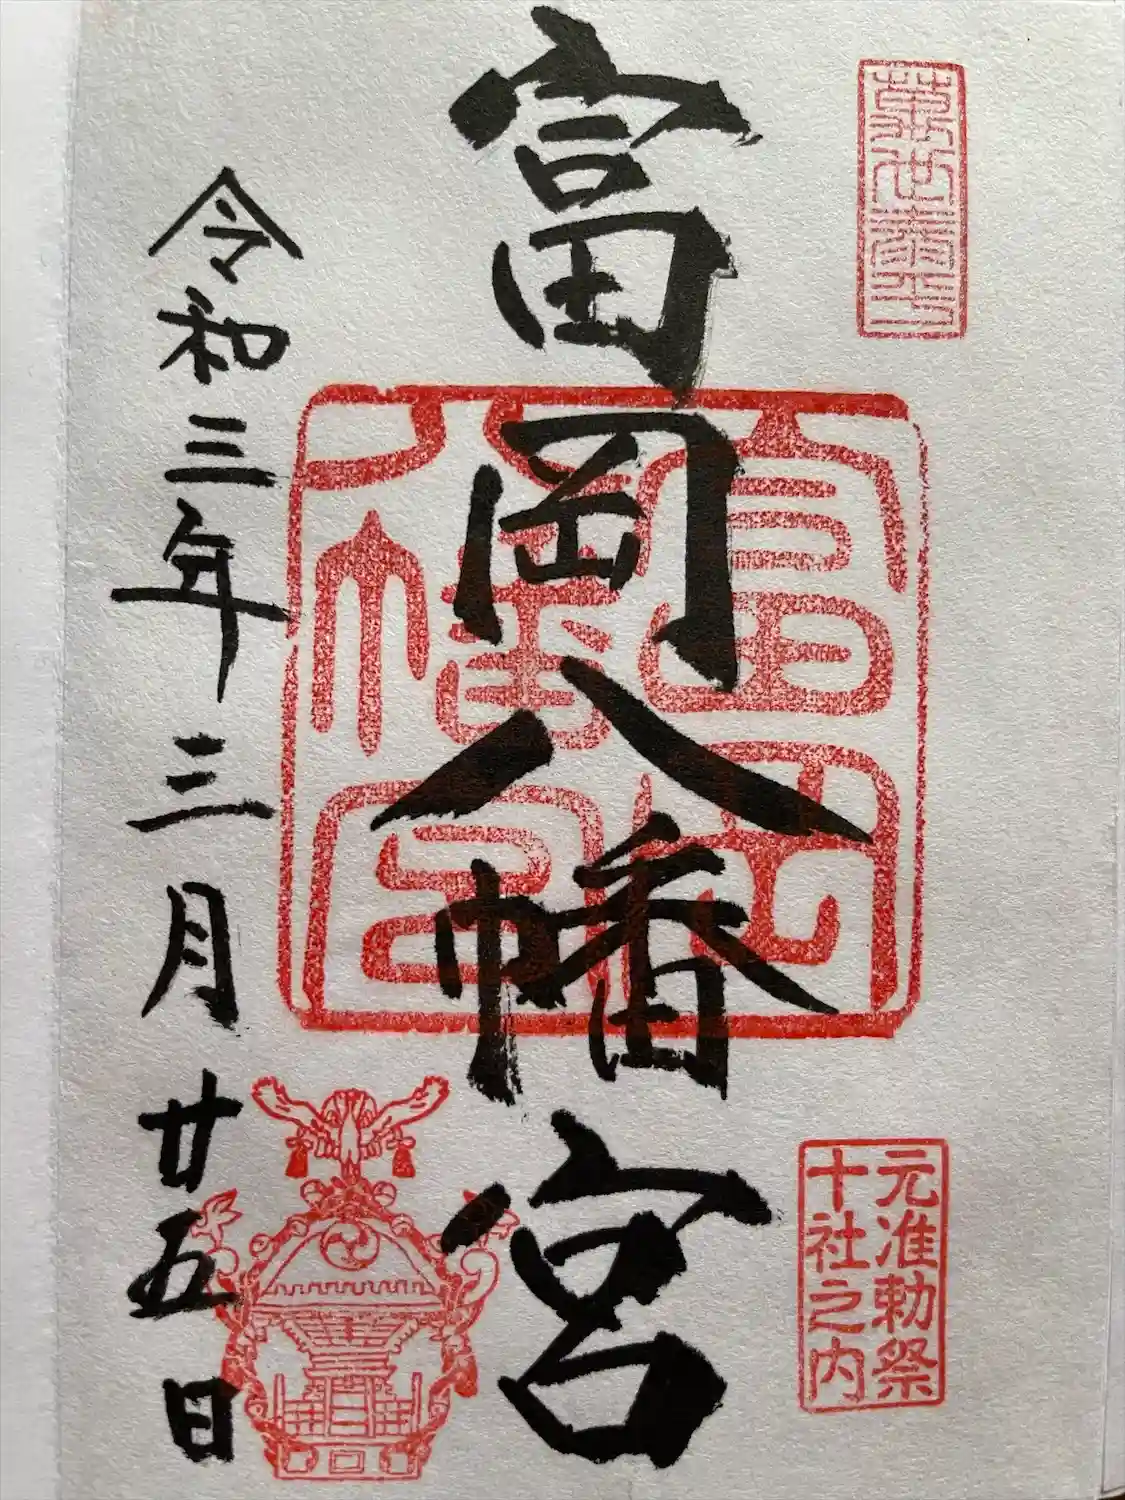 富岡八幡宮
令和三年三月廿五日
富岡八幡宮
元准勅祭
十社之内